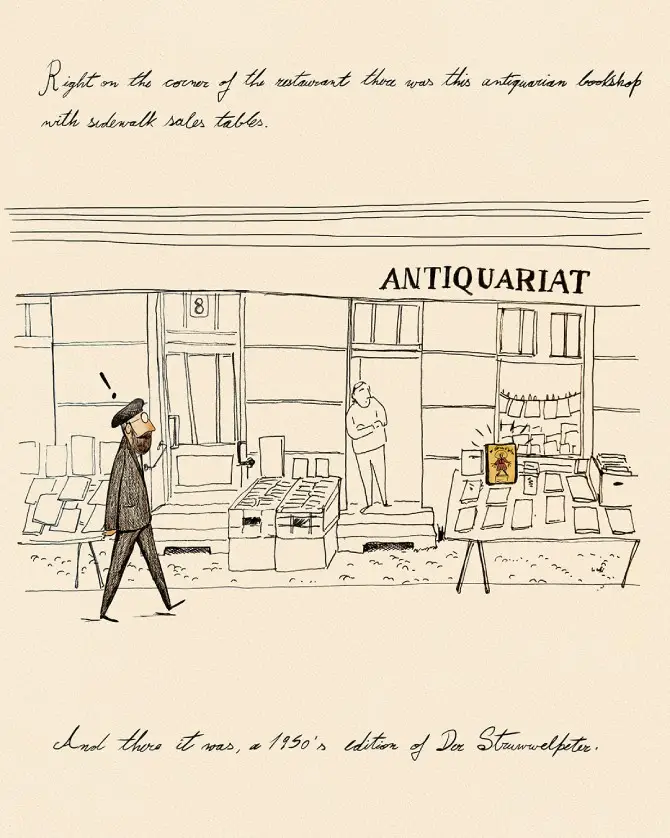 Right on the corner of the restaurant there was this antiquarian bookshop
with sidewalk sales tables.
ANTIQUARIAT
8
!
And there it was, a 1950's edition of Der Struwwelpeter.